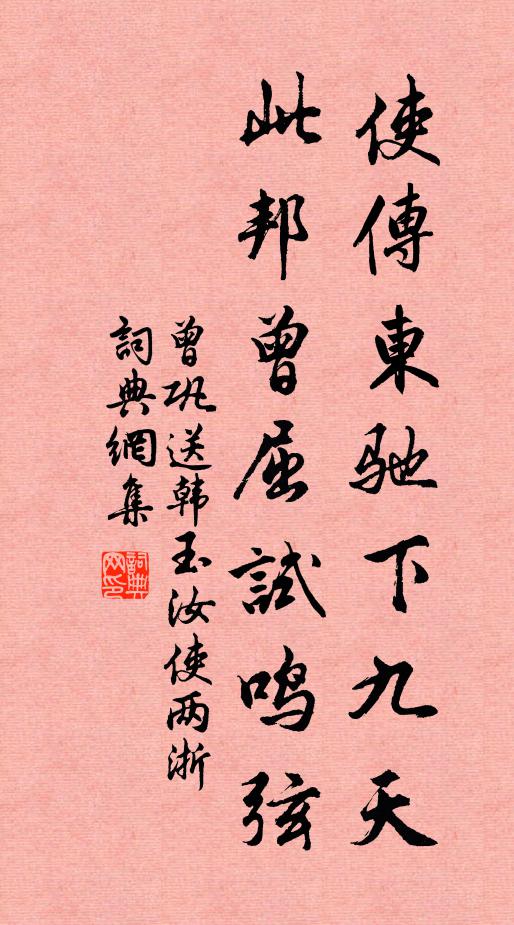 使傳東馳下九天
此邦曾屈試鸣弦
曾巩送韩玉汝使两浙
詞典網集
詞典網印